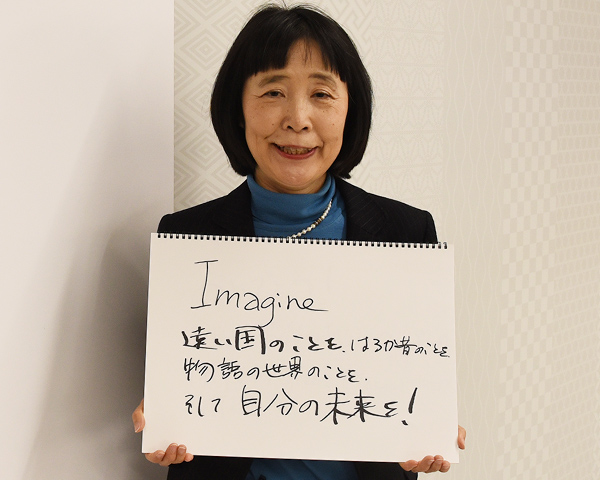 Imagine
遠い国のことを、はるか昔のことを
物語の世界のことを、
そして自分の未来を!